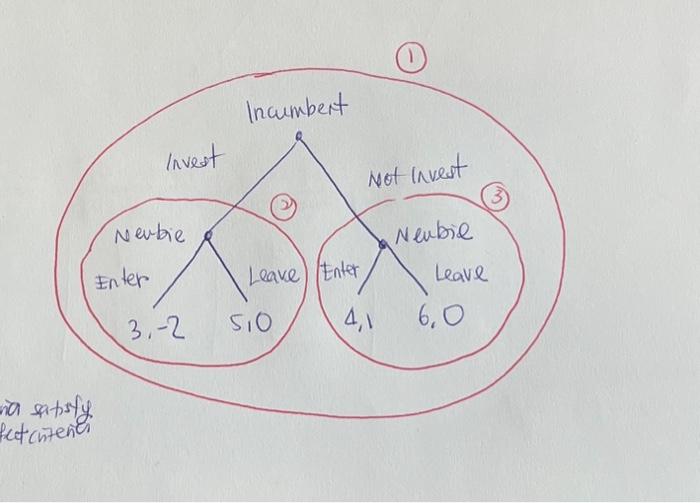 ①
Incumbent
Invest
Not Invest
②
③
Newbie
Newbie
Enter
Leave
Enter
Leave
3,-2
5,0
4,1
6,0
satisfy